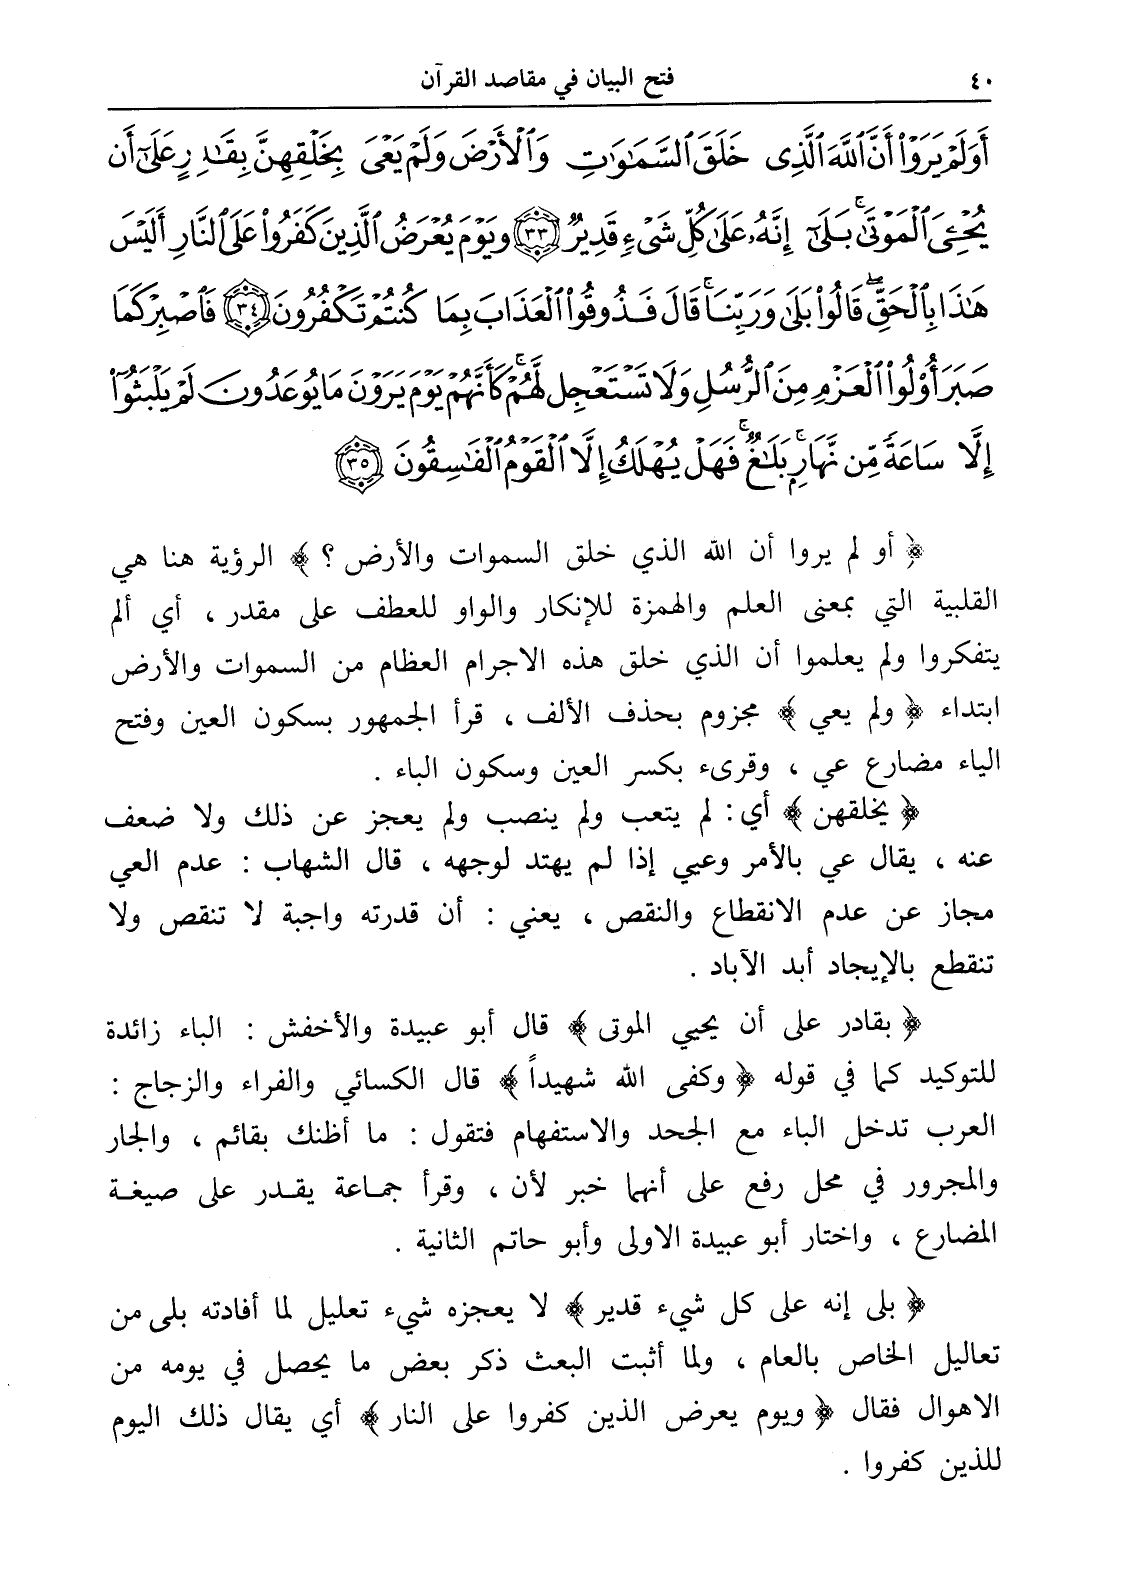 ٤٠
فتح البيان في مقاصد القرآن
أَوَلَمْ يَرَوْا۟ أَنَّ ٱللَّهَ ٱلَّذِى خَلَقَ ٱلسَّمَٰوَٰتِ وَٱلْأَرْضَ وَلَمْ يَعْىَ بِخَلْقِهِنَّ بِقَٰدِرٍ عَلَىٰٓ أَن
يُحْۦِىَ ٱلْمَوْتَىٰ ۚ بَلَىٰٓ إِنَّهُۥ عَلَىٰ كُلِّ شَىْءٍ قَدِيرٌ ﴿٣٣﴾ وَيَوْمَ يُعْرَضُ ٱلَّذِينَ كَفَرُوا۟ عَلَى ٱلنَّارِ أَلَيْسَ
هَٰذَا بِٱلْحَقِّ ۖ قَالُوا۟ بَلَىٰ وَرَبِّنَا ۚ قَالَ فَذُوقُوا۟ ٱلْعَذَابَ بِمَا كُنتُمْ تَكْفُرُونَ ﴿٣٤﴾ فَٱصْبِرْ كَمَا
صَبَرَ أُو۟لُوا۟ ٱلْعَزْمِ مِنَ ٱلرُّسُلِ وَلَا تَسْتَعْجِل لَّهُمْ ۚ كَأَنَّهُمْ يَوْمَ يَرَوْنَ مَا يُوعَدُونَ لَمْ يَلْبَثُوٓا۟
إِلَّا سَاعَةً مِّن نَّهَارٍ ۚ بَلَٰغٌ ۚ فَهَلْ يُهْلَكُ إِلَّا ٱلْقَوْمُ ٱلْفَٰسِقُونَ ﴿٣٥﴾
﴿ أو لم يروا أن الله الذي خلق السموات والأرض ؟ ﴾ الرؤية هنا هي
القلبية التي بمعنى العلم والهمزة للإنكار والواو للعطف على مقدر ، أي ألم
يتفكروا ولم يعلموا أن الذي خلق هذه الاجرام العظام من السموات والأرض
ابتداء ﴿ ولم يعي ﴾ مجزوم بحذف الألف ، قرأ الجمهور بسكون العين وفتح
الياء مضارع عي ، وقرىء بكسر العين وسكون الباء .
﴿ يخلقهن ﴾ أي : لم يتعب ولم ينصب ولم يعجز عن ذلك ولا ضعف
عنه ، يقال عي بالأمر وعيي إذا لم يهتد لوجهه ، قال الشهاب : عدم العي
مجاز عن عدم الانقطاع والنقص ، يعني : أن قدرته واجبة لا تنقص ولا
تنقطع بالإيجاد أبد الآباد .
﴿ بقادر على أن يحيي الموتى ﴾ قال أبو عبيدة والأخفش : الباء زائدة
للتوكيد كما في قوله ﴿ وكفى الله شهيداً ﴾ قال الكسائي والفراء والزجاج :
العرب تدخل الباء مع الجحد والاستفهام فتقول : ما أظنك بقائم ، والجار
والمجرور في محل رفع على أنهما خبر لأن ، وقرأ جماعة يقدر على صيغة
المضارع ، واختار أبو عبيدة الاولى وأبو حاتم الثانية .
﴿ بلى إنه على كل شيء قدير ﴾ لا يعجزه شيء تعليل لما أفادته بلى من
تعاليل الخاص بالعام ، ولما أثبت البعث ذكر بعض ما يحصل في يومه من
الاهوال فقال ﴿ ويوم يعرض الذين كفروا على النار ﴾ أي يقال ذلك اليوم
للذين كفروا .